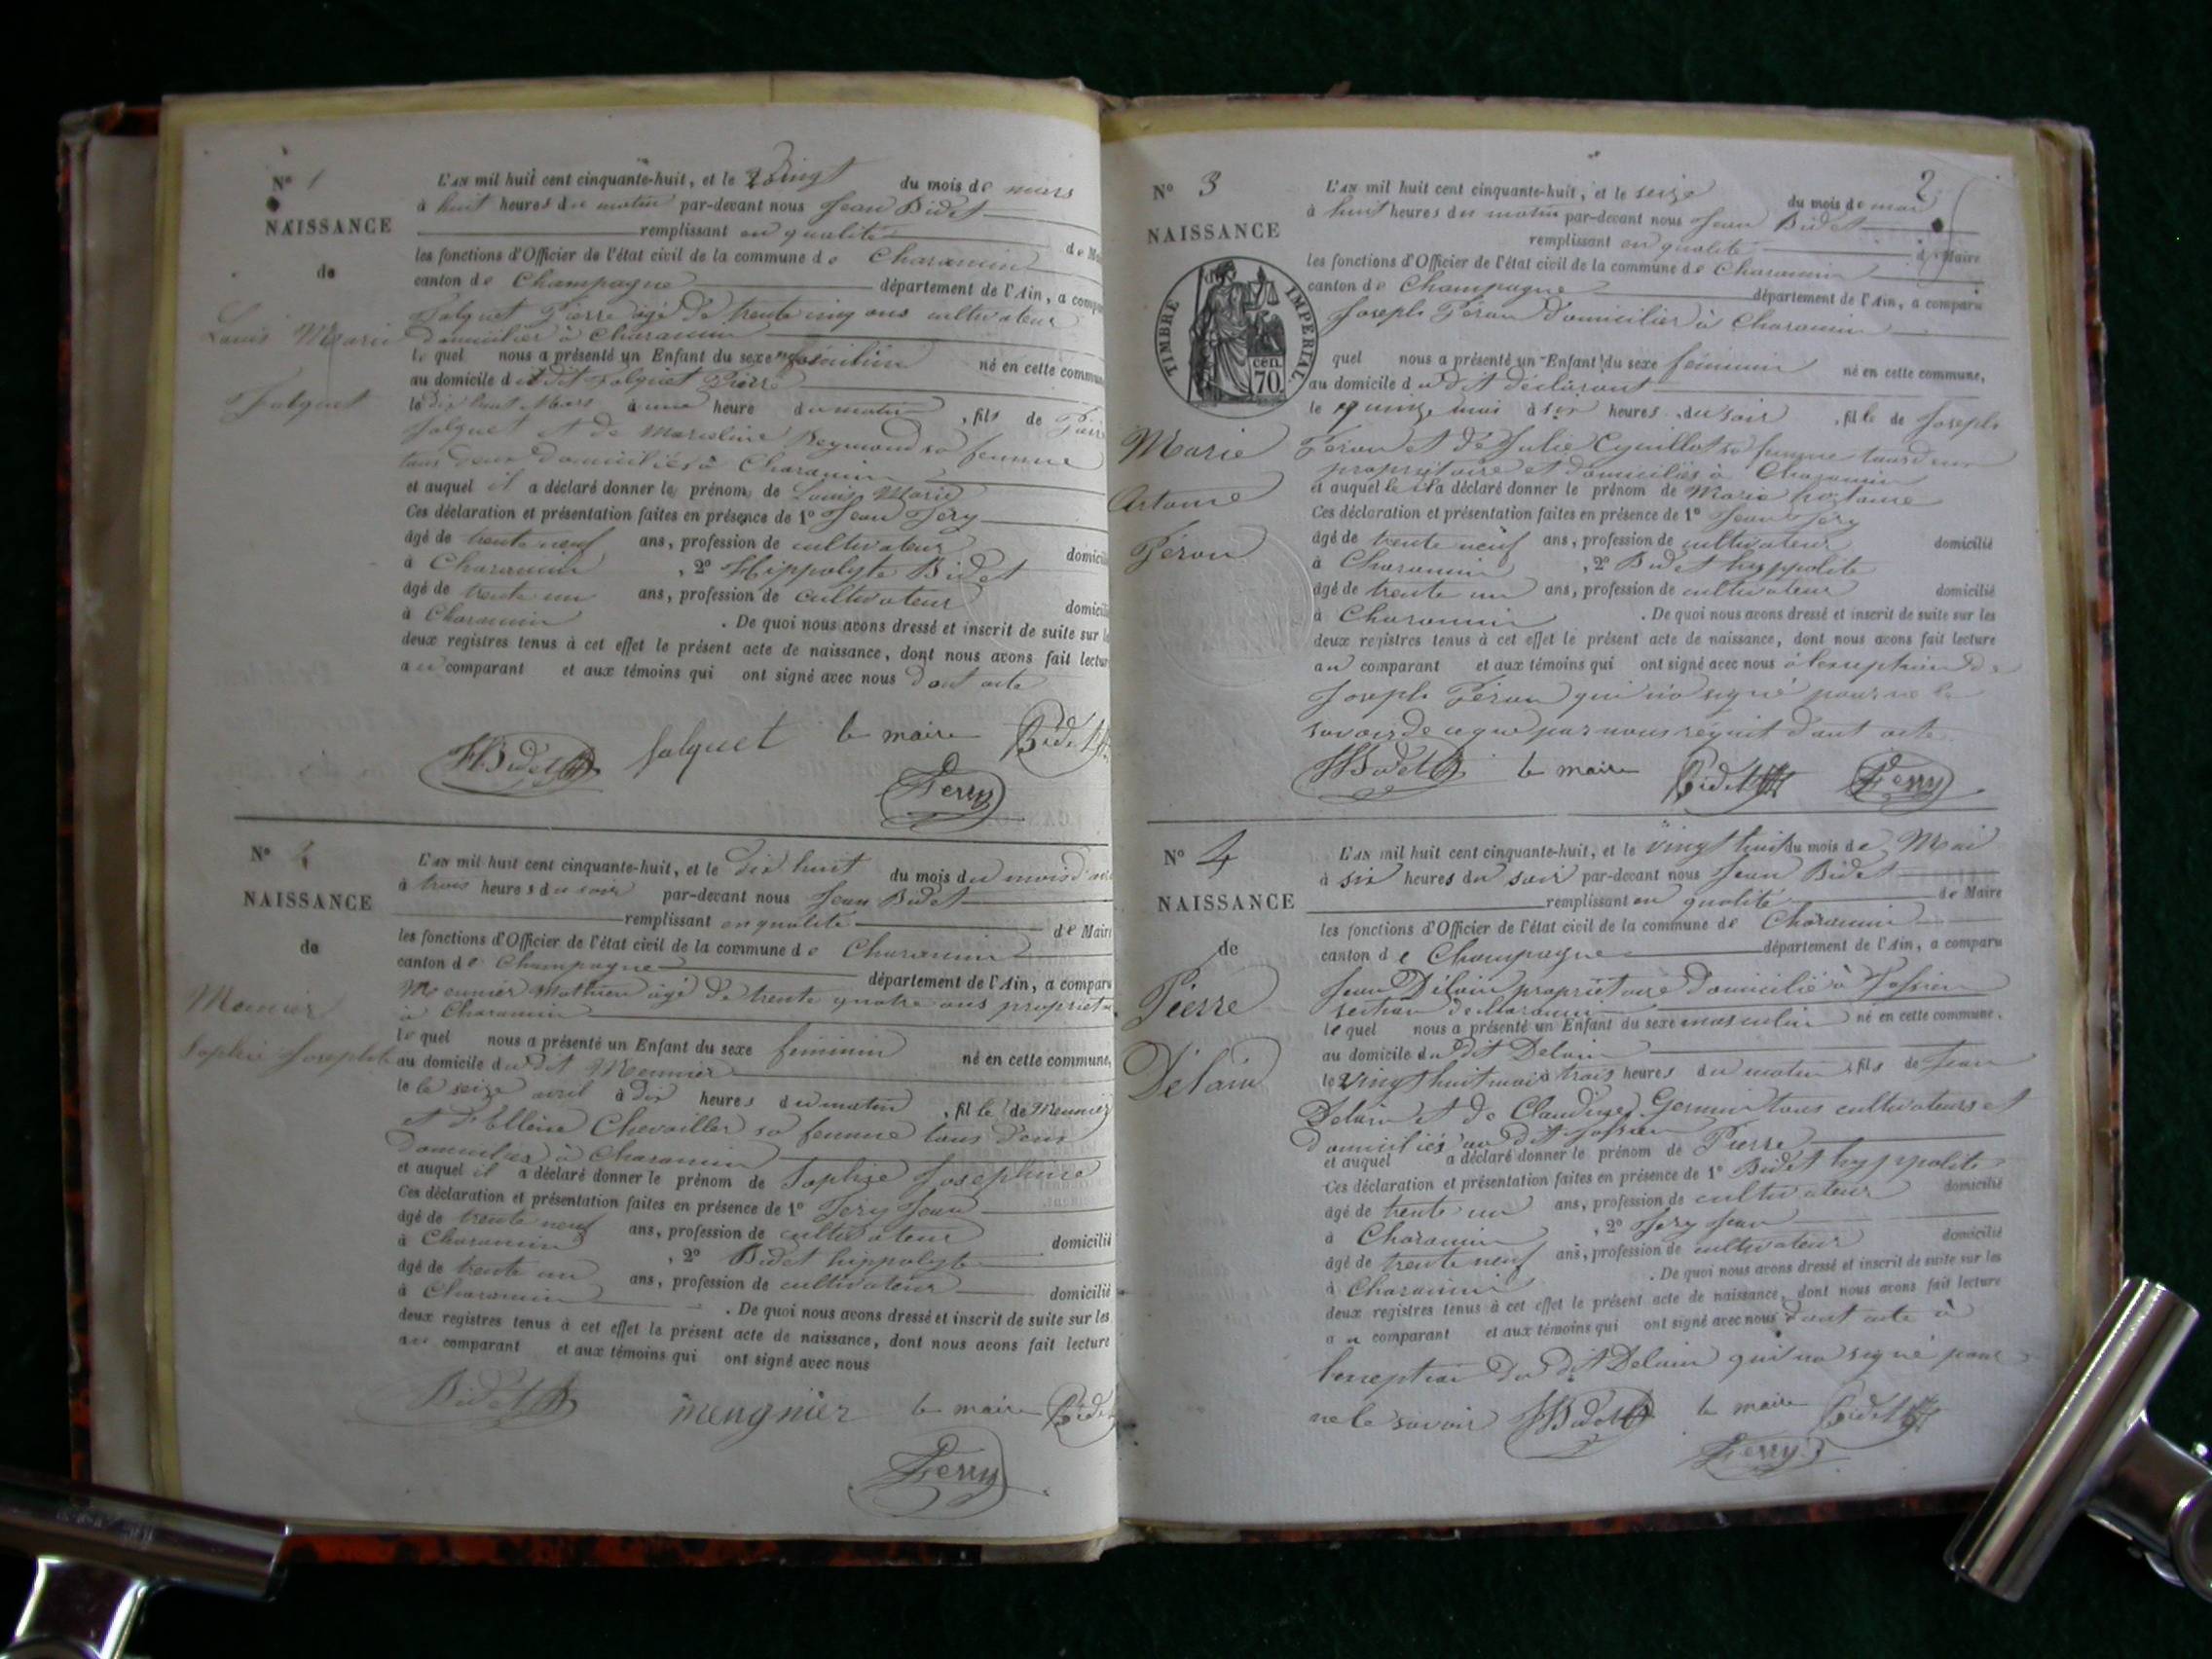 N° 1
NAISSANCE
de
Louis Marie
Falquet
L'AN mil huit cent cinquante-huit, et le vingt du mois de mars
à huit heures du matin par-devant nous Jean Bidet
remplissant en qualité de
les fonctions d'Officier de l'état civil de la commune de Charancin
canton de Champagne département de l'Ain, a
Falquet Pierre âgé de trente cinq ans cultivateur
domicilié à Charancin
le quel nous a présenté un Enfant du sexe masculin né en cette
au domicile du dit Falquet Pierre
le dix huit Mars à une heure du matin, fils de
Falquet et de Marceline Reymond sa femme
tous deux domiciliés à Charancin
et auquel il a déclaré donner le prénom de Louis Marie
Ces déclaration et présentation faites en présence de 1° Jean Féry
âgé de trente neuf ans, profession de cultivateur
à Charancin, 2° Hippolyte Bidet
âgé de trente un ans, profession de cultivateur
à Charancin. De quoi nous avons dressé et inscrit de suite sur
deux registres tenus à cet effet le présent acte de naissance, dont nous avons fait
au comparant et aux témoins qui ont signé avec nous dont acte
HBidet falquet le maire Bidet
Ferry
N°
NAISSANCE
de
Meunier
Sophie Josephte
L'AN mil huit cent cinquante-huit, et le dix huit du mois du mois d'
à trois heures du soir par-devant nous Jean Bidet
remplissant en qualité de Maire
les fonctions d'Officier de l'état civil de la commune de Charancin
canton de Champagne département de l'Ain, a comparu
Meunier Mathieu âgé de trente quatre ans
à Charancin
le quel nous a présenté un Enfant du sexe féminin né en cette commune,
au domicile du dit Meunier
le le seize avril à dix heures du matin, fille de Meunier
et d'Ellene Chevailler sa femme tous deux
domiciliés à Charancin
et auquel il a déclaré donner le prénom de Sophie Josephine
Ces déclaration et présentation faites en présence de 1° Féry Jean
âgé de trente neuf ans, profession de cultivateur domicilié
à Charancin, 2° Bidet hippolyte
âgé de trente un ans, profession de cultivateur domicilié
à Charancin. De quoi nous avons dressé et inscrit de suite sur les
deux registres tenus à cet effet le présent acte de naissance, dont nous avons fait lecture
au comparant et aux témoins qui ont signé avec nous
Bidet meugnier le maire Bidet
Ferry
2
N° 3
NAISSANCE
TIMBRE IMPERIAL
70 cen
Marie
Antoine
Féron
L'AN mil huit cent cinquante-huit, et le seize du mois de mai
à huit heures du matin par-devant nous Jean Bidet
remplissant en qualité de Maire
les fonctions d'Officier de l'état civil de la commune de Charancin
canton de Champagne département de l'Ain, a comparu
Joseph Féron domicilier à Charancin
quel nous a présenté un Enfant du sexe féminin né en cette commune,
au domicile du dit déclarant
le quinze mai à six heures du soir, fille de Joseph
Féron et de Julie sa femme tous deux
propriétaire et domiciliés à Charancin
et auquel a déclaré donner le prénom de Marie
Ces déclaration et présentation faites en présence de 1° Jean Féry
âgé de trente neuf ans, profession de cultivateur domicilié
à Charancin, 2° Bidet hyppolite
âgé de trente un ans, profession de cultivateur domicilié
à Charancin. De quoi nous avons dressé et inscrit de suite sur les
deux registres tenus à cet effet le présent acte de naissance, dont nous avons fait lecture
au comparant et aux témoins qui ont signé avec nous à l'exception de
Joseph Féron qui n'a signé pour ne le
savoir de ce que par nous réquit dont acte
HBidet le maire Bidet Ferry
N° 4
NAISSANCE
de
Pierre
Délain
L'AN mil huit cent cinquante-huit, et le vingt huit du mois de Mai
à six heures du soir par-devant nous Jean Bidet
remplissant en qualité de Maire
les fonctions d'Officier de l'état civil de la commune de Charancin
canton de Champagne département de l'Ain, a comparu
Jean Délain propriétaire domicilié à
section de Charancin
le quel nous a présenté un Enfant du sexe masculin né en cette commune,
au domicile du dit Delain
le vingt huit mai à trois heures du matin, fils de Jean
Delain et de Claudine Germain tous cultivateurs et
domiciliés au dit
et auquel a déclaré donner le prénom de Pierre
Ces déclaration et présentation faites en présence de 1° Bidet hyppolite
âgé de trente un ans, profession de cultivateur domicilié
à Charancin, 2° Féry Jean
âgé de trente neuf ans, profession de cultivateur domicilié
à Charancin. De quoi nous avons dressé et inscrit de suite sur les
deux registres tenus à cet effet le présent acte de naissance, dont nous avons fait lecture
au comparant et aux témoins qui ont signé avec nous dont acte à
l'exception du dit Delain qui na signé pour
ne le savoir HBidet le maire Bidet
Ferry